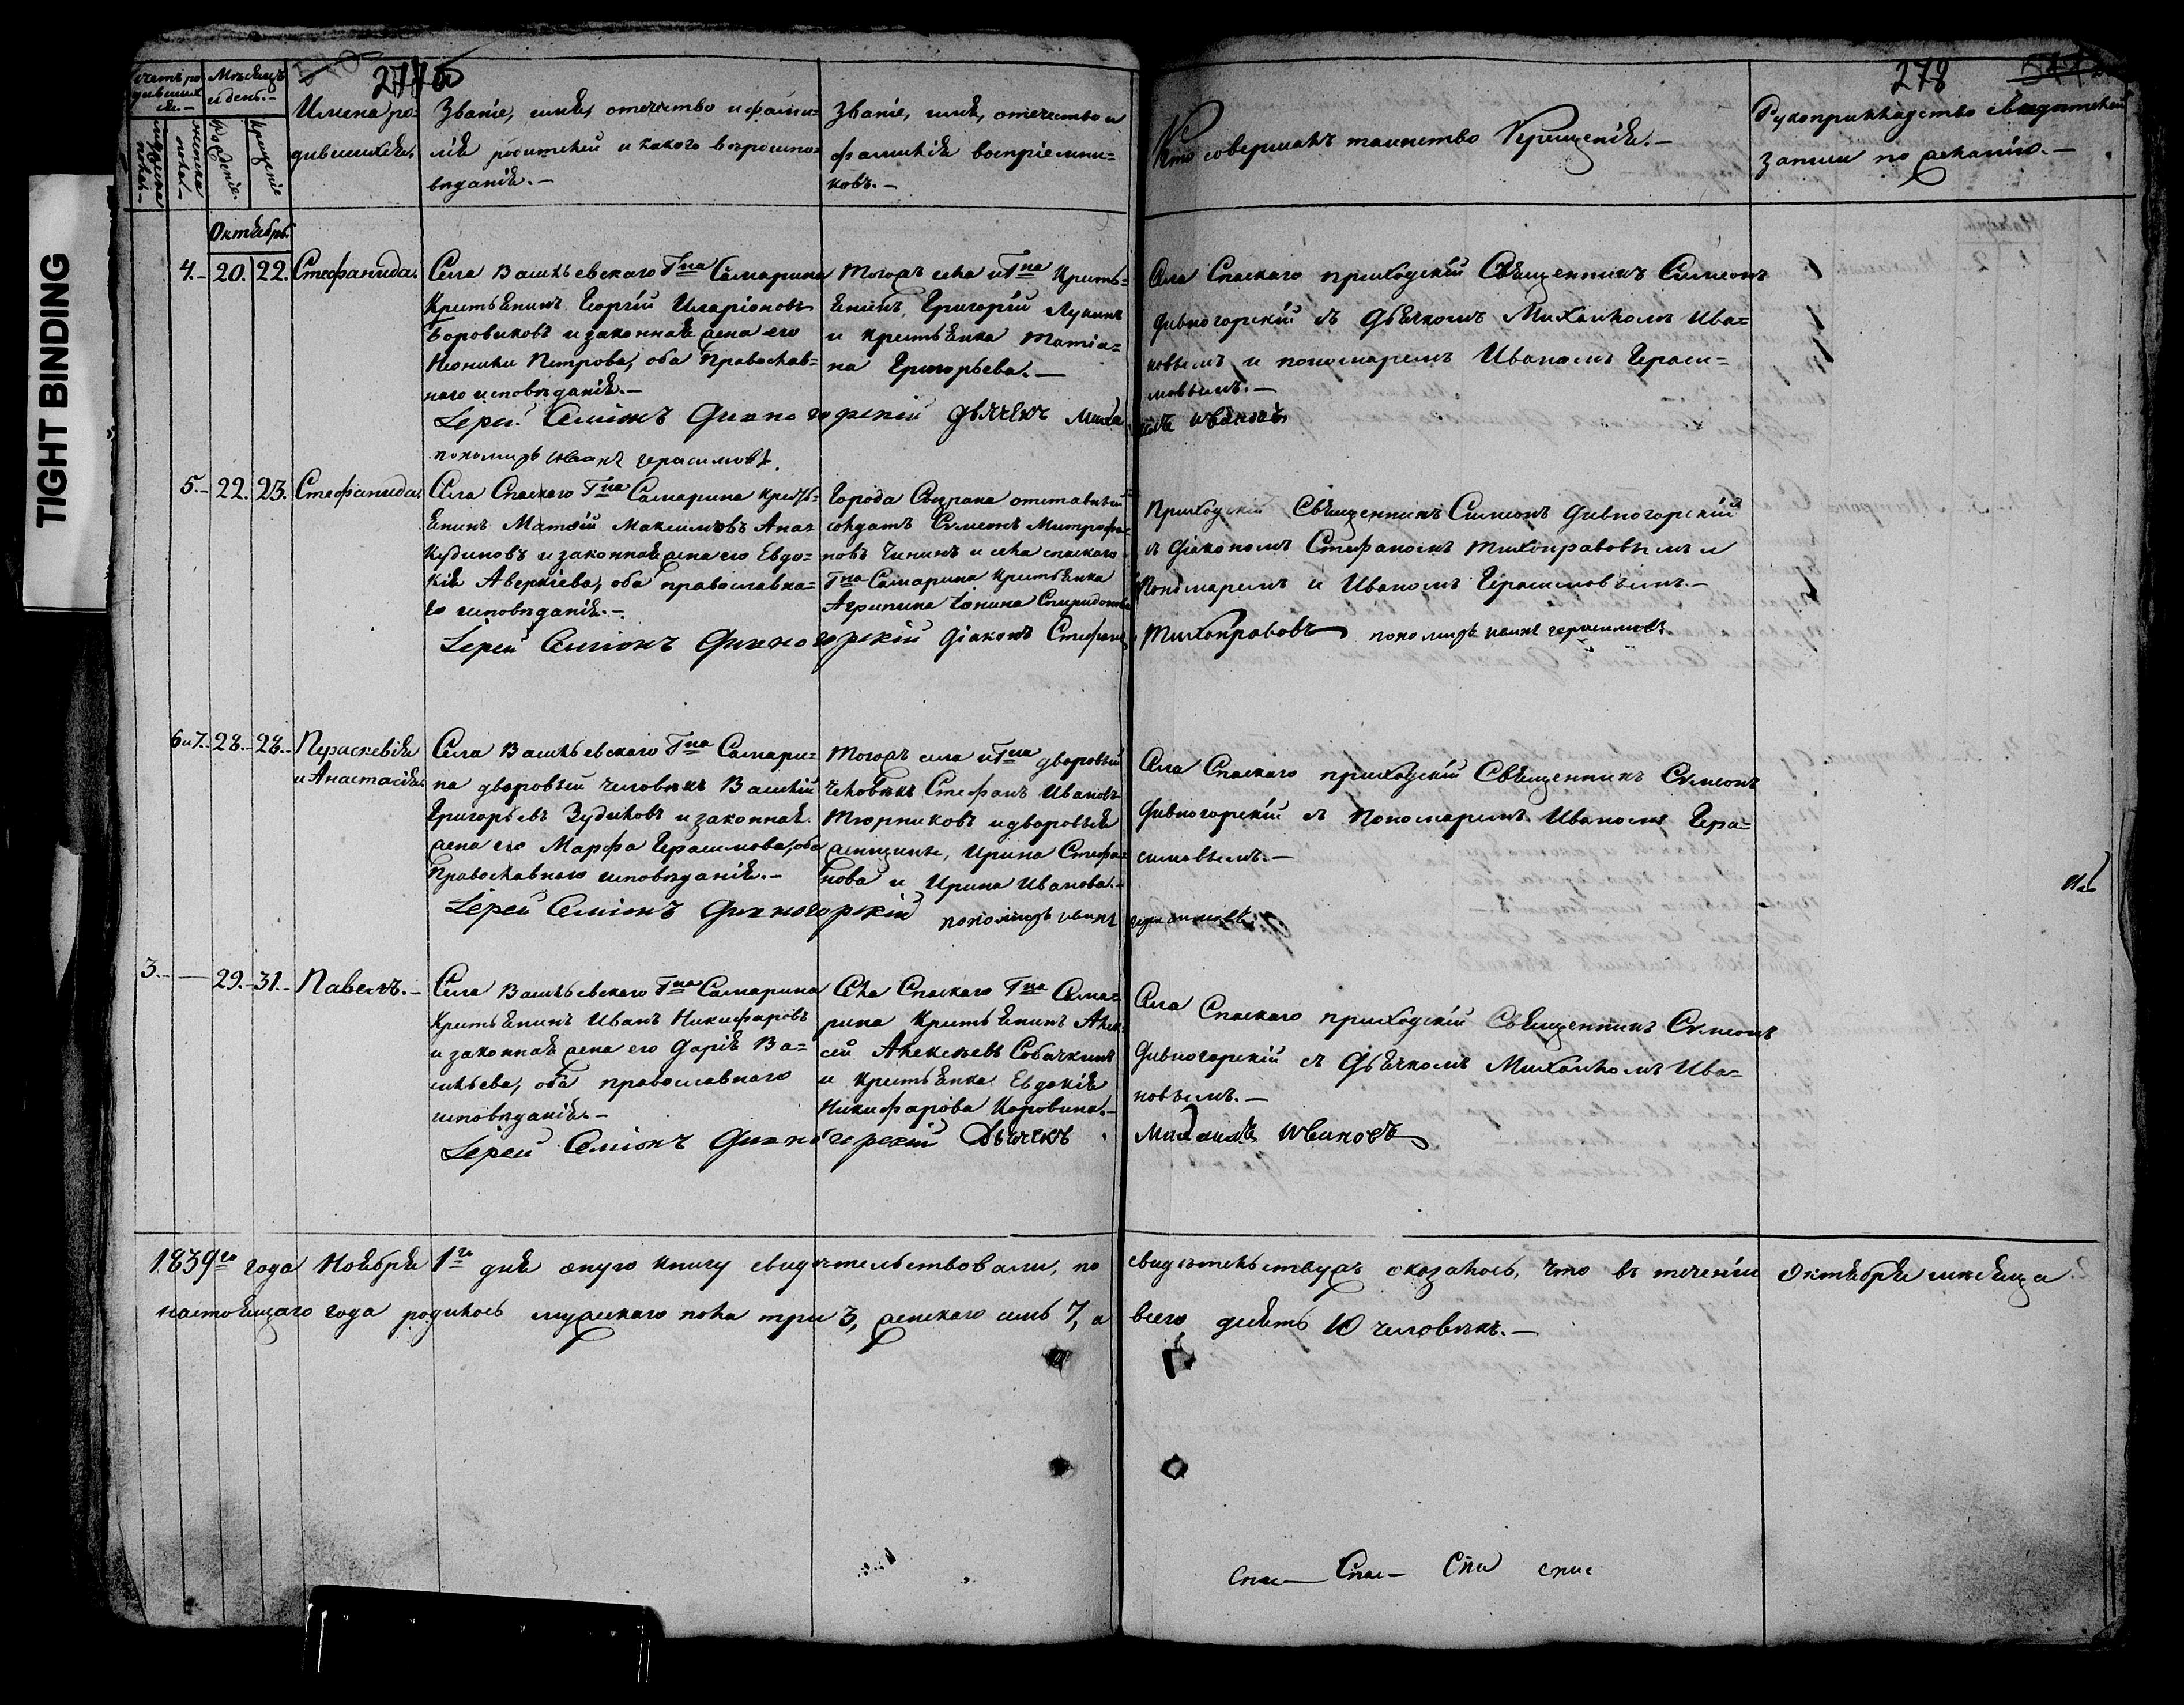 TIGHT BINDING
277 об
278
Счетъ родившихся.-
Мѣсяцъ и день.-
мужеска пола.-
женска пола.-
Рожденіе.
Крещеніе
Имена ро-
дившихся.
Званіе, имя, отечество и фами-
лія родителей и какого вѣроиспо-
вѣданія.-
Званіе, имя, отечество и
фамилія воспріемни-
ковъ.-
Кто совершалъ таинство Крещенія.-
Рукоприкладство свидѣтелей
записи по желанію.-
Октябрь.
4.- 20. 22. Стефанида.
Села Васильевскаго Гна Самарина
Крестьянинъ Георгій Иларіоновъ
Боровиковъ и законная жена его
Неонила Петрова, оба Православ=
наго исповѣданія.-
Тогожъ села и Гна Кресть=
янинъ, Григорій Лукинъ
и крестьянка Татіа=
на Григорьева.-
Села Спаскаго приходскій Священникъ Симеонъ
Дивногорскій съ Дьячкомъ Михаиломъ Ива=
новымъ и пономаремъ Иваномъ Гераси=
мовымъ.-
Іерей Семіонъ Дивногорскій дьячекъ Михаилъ Ивановъ
пономарь Иванъ Герасимовъ.
5.- 22. 23. Стефанида.
Села Спаскаго Гна Самарина крестьь=
янинъ Матѳій Максимовъ Анаَ
Кудиновъ и законная жена его Евдо=
кія Аверкіева, оба православна=
го исповѣданія.-
Города Сызрана отставный
солдатъ Сѵмеонъ Митрофа=
новъ Чининъ и села спаскаго
Гна Самарина крестьянка
Агрипина Іонина Спиридонова
Приходскій Священникъ Симеонъ Дивногорскій
съ Діакономъ Стефаномъ Тихонравовымъ и
Пономаремъ и Иваномъ Герасимовымъ.-
Іерей Семіонъ Дивногорскій Діаконъ Стефанъ Тихонравовъ пономарь Иванъ Герасимовъ
6 и 7. 28.- 28.- Параскевія
и Анастасія.
Села Васильевскаго Гна Самари=
на дворовый человѣкъ Василій
Григорьевъ Зудиловъ и законная
жена его Марфа Герасимова, оба
Православнаго исповѣданія.-
Тогожъ села и Гна дворовый
человѣкъ Стефанъ Ивановъ
Тюрниковъ и дворовыя
женщины, Ирина Стефа=
нова и Ирина Иванова.-
Села Спаскаго приходскій Священникъ Сѵмеонъ
Дивногорскій съ Пономаремъ Иваномъ Гера=
симовымъ.-
Іерей Семіонъ Дивногорскій пономарь Иванъ Герасимовъ
3.- — 29.- 31.- Павелъ.-
Села Васильевскаго Гна Самарина
Крестьянинъ Иванъ Никифаровъ
и законная жена его Дарія Ва=
сильева, оба православнаго
исповѣданія.-
Села Спаскаго Гна Сама=
рина Крестьянинъ Алек=
сей Алексѣевъ Собачкинъ
и крестьянка Евдокія
Никифарова Коровина.-
Села Спаскаго приходскій Священникъ Сѵмеонъ
Дивногорскій съ Дьячкомъ Михаиломъ Ива=
новымъ.-
Іерей Семіонъ Дивногорскій Дьячекъ Михаилъ Ивановъ
1839го года Ноября 1го дня оную книгу свидѣтельствовали, по свидѣтельствуже оказалось, что въ теченіи Октября мѣсяца
настоящаго года родилось мужескаго пола три 3, женскаго семь 7, а всего десять 10 человѣкъ.-
Спас- Спас- Спи спис